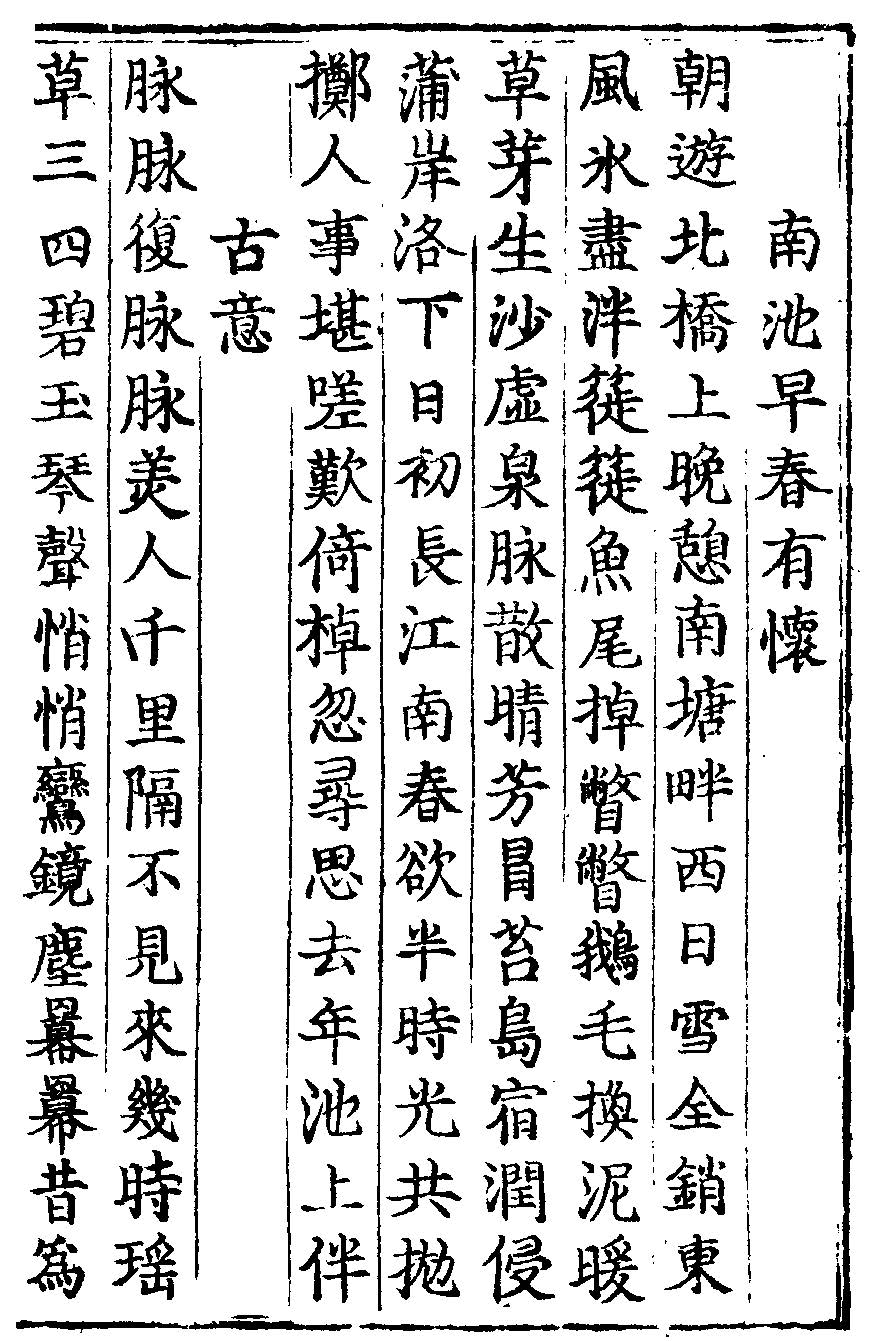 南池早春有懷
朝遊北橋上晚憩南塘畔西日雪全銷東
風氷盡泮簁簁魚尾掉瞥瞥鵝毛換泥暖
草芽生沙虛泉脉散晴芳冒苔島宿潤侵
蒲岸洛下日初長江南春欲半時光共拋
擲人事堪嗟歎倚棹忽尋思去年池上伴
古意
脉脉復脉脉美人千里隔不見來幾時瑶
草三四碧玉琴聲悄悄鸞鏡塵羃羃昔為